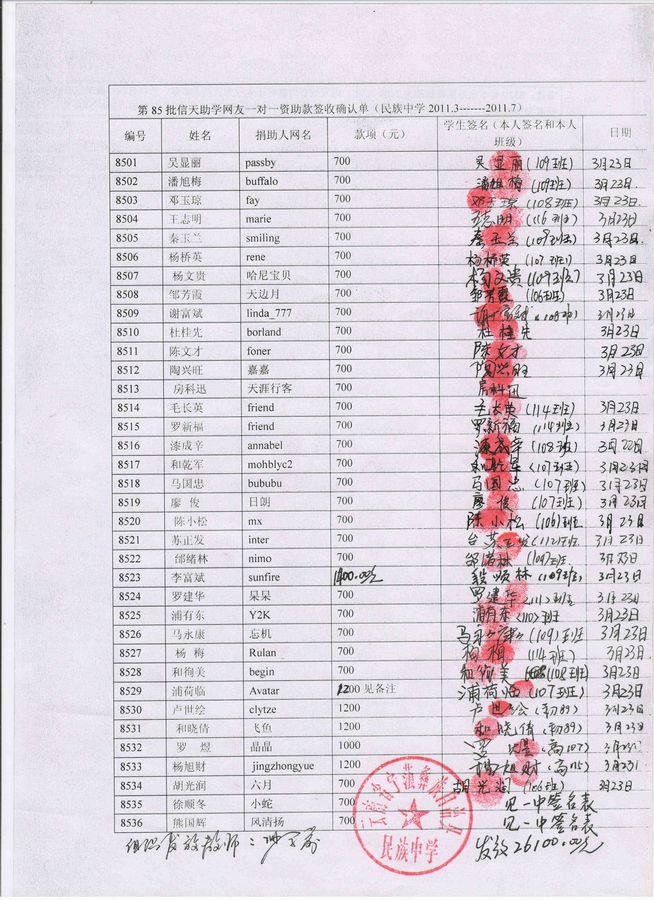 第 85 批信天助学网友一对一资助款签收确认单（民族中学 2011.3-------2011.7）
编号 姓名 捐助人网名 款项（元） 学生签名（本人签名和本人班级） 日期
8501 吴显丽 passby 700 吴显丽 (109班) 3月23日
8502 潘旭梅 buffalo 700 潘旭梅 (109班) 3月23日
8503 邓玉琼 fay 700 邓玉琼 (108班) 3月23日
8504 王志明 marie 700 王志明 (116班) 3月23日
8505 秦玉兰 smiling 700 秦玉兰 (109班) 3月23日
8506 杨桥英 rene 700 杨桥英 (107班) 3月23日
8507 杨文贵 哈尼宝贝 700 杨文贵 (109班) 3月23日
8508 邹芳霞 天边月 700 邹芳霞 (106班) 3月23日
8509 谢富斌 linda_777 700 谢富斌 3月23日
8510 杜桂先 borland 700 杜桂先 3月23日
8511 陈文才 foner 700 陈文才 3月23日
8512 陶兴旺 嘉嘉 700 陶兴旺 3月23日
8513 房科迅 天涯行客 700 房科迅
8514 毛长英 friend 700 毛长英 (114班) 3月23日
8515 罗新福 friend 700 罗新福 (114班) 3月23日
8516 漆成辛 annabel 700 漆成辛 (108班) 3月22日
8517 和乾军 mohblyc2 700 和乾军 (107班) 3月23日
8518 马国忠 bububu 700 马国忠 (107班) 3月23日
8519 廖 俊 日朗 700 廖俊 (107班) 3月23日
8520 陈小松 mx 700 陈小松 (106班) 3月23日
8521 苏正发 inter 700 苏正发 (112班) 3月23日
8522 邰绪林 nimo 700 (109班) 3月23日
8523 李富斌 sunfire 1400.00元 (109班) 3月23日
8524 罗建华 杲杲 700 罗建华 (111班) 3月23日
8525 浦有东 Y2K 700 浦有东 (110班) 3月23日
8526 马永康 忘机 700 马永康 (109班) 3月23日
8527 杨 梅 Rulan 700 杨梅 (114班) 3月23日
8528 和徇美 begin 700 和徇美 (108班) 3月23日
8529 浦荷临 Avatar 1200 见备注 浦荷临 (107班) 3月23日
8530 卢世绘 clytze 1200 卢世绘 (初89) 3月23日
8531 和晓倩 飞鱼 1200 和晓倩 (初89) 3月23日
8532 罗 煜 晶晶 1000 罗煜 (高107) 3月23日
8533 杨旭财 jingzhongyue 1200 杨旭财 (高115) 3月23日
8534 胡光润 六月 700 胡光润 (106班) 3月23日
8535 徐顺冬 小蛇 700 见一中签名表
8536 熊国辉 风清扬 700 见一中签名表
民族中学
发放教师：
发放 26100.00元